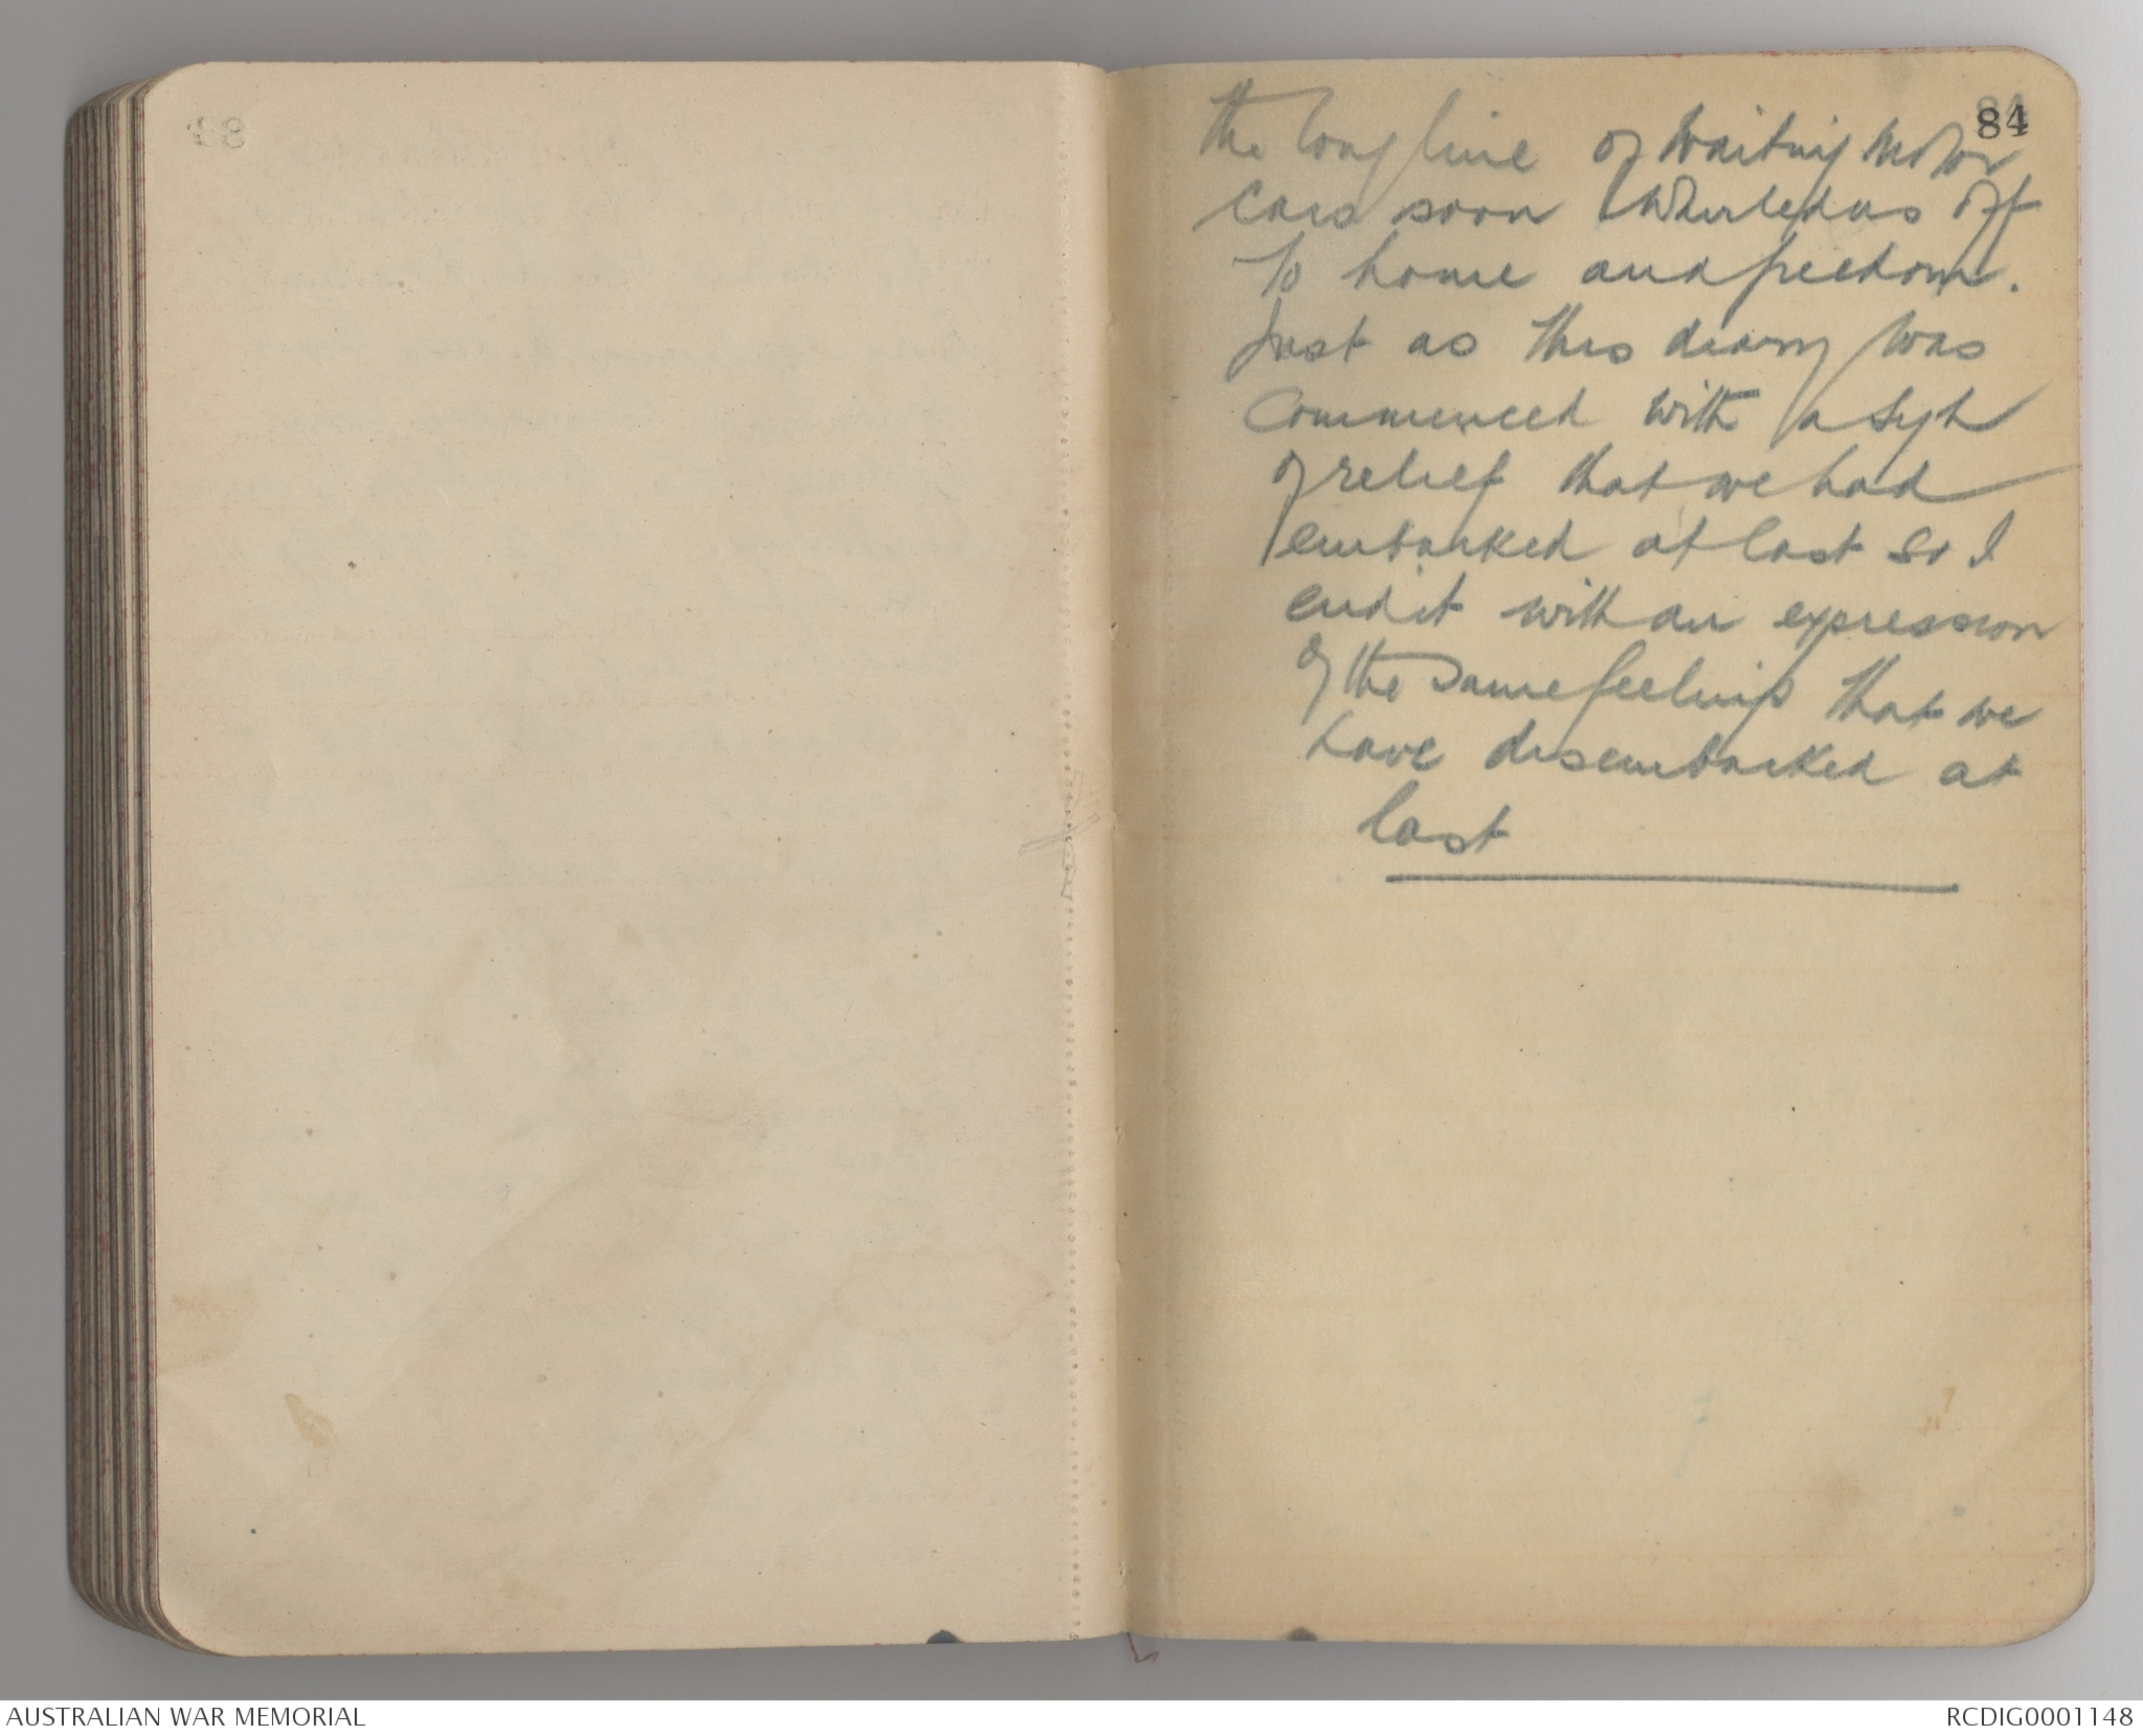 84
the long line of waiting motor
cars soon whirled us off
to home and freedom.
Just as this diary was
commenced with a sigh
of relief that we had
embarked at last so I
end it with an expression
of the same feelings that we
have disembarked at
last
AUSTRALIAN WAR MEMORIAL
RCDIG0001148